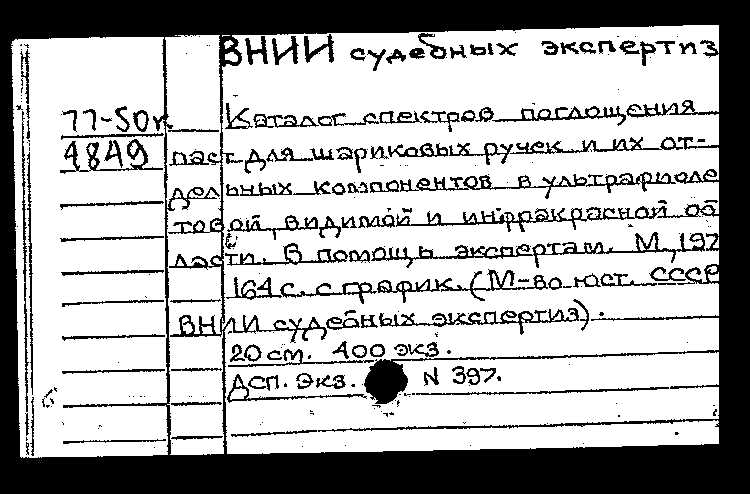 ВНИИ судебных экспертиз
77-50к Каталог спектров поглощения
4849 паст для шариковых ручек и их от-
дельных компонентов в ультрафиоле
товой, видимой и инфракрасной об
ласти. В помощь экспертам. М., 197
164 с. с график. (М-во юст. СССР
ВНИИ судебных экспертиз).
20 см. 400 экз.
Дсп. Экз. N 397.
б